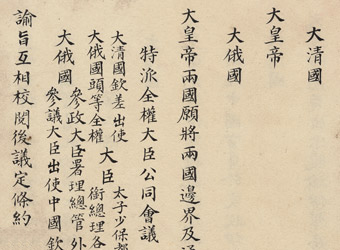 大清國
大皇帝
大俄國
大皇帝兩國願將兩國邊界及通
特派全權大臣公同會議
大清國欽差出使
大俄國頭等全權
大臣
太子少保都
銜總理各
參政大臣署理總管外
大俄國
參議大臣出使中國欽
諭旨互相校閱後議定條約